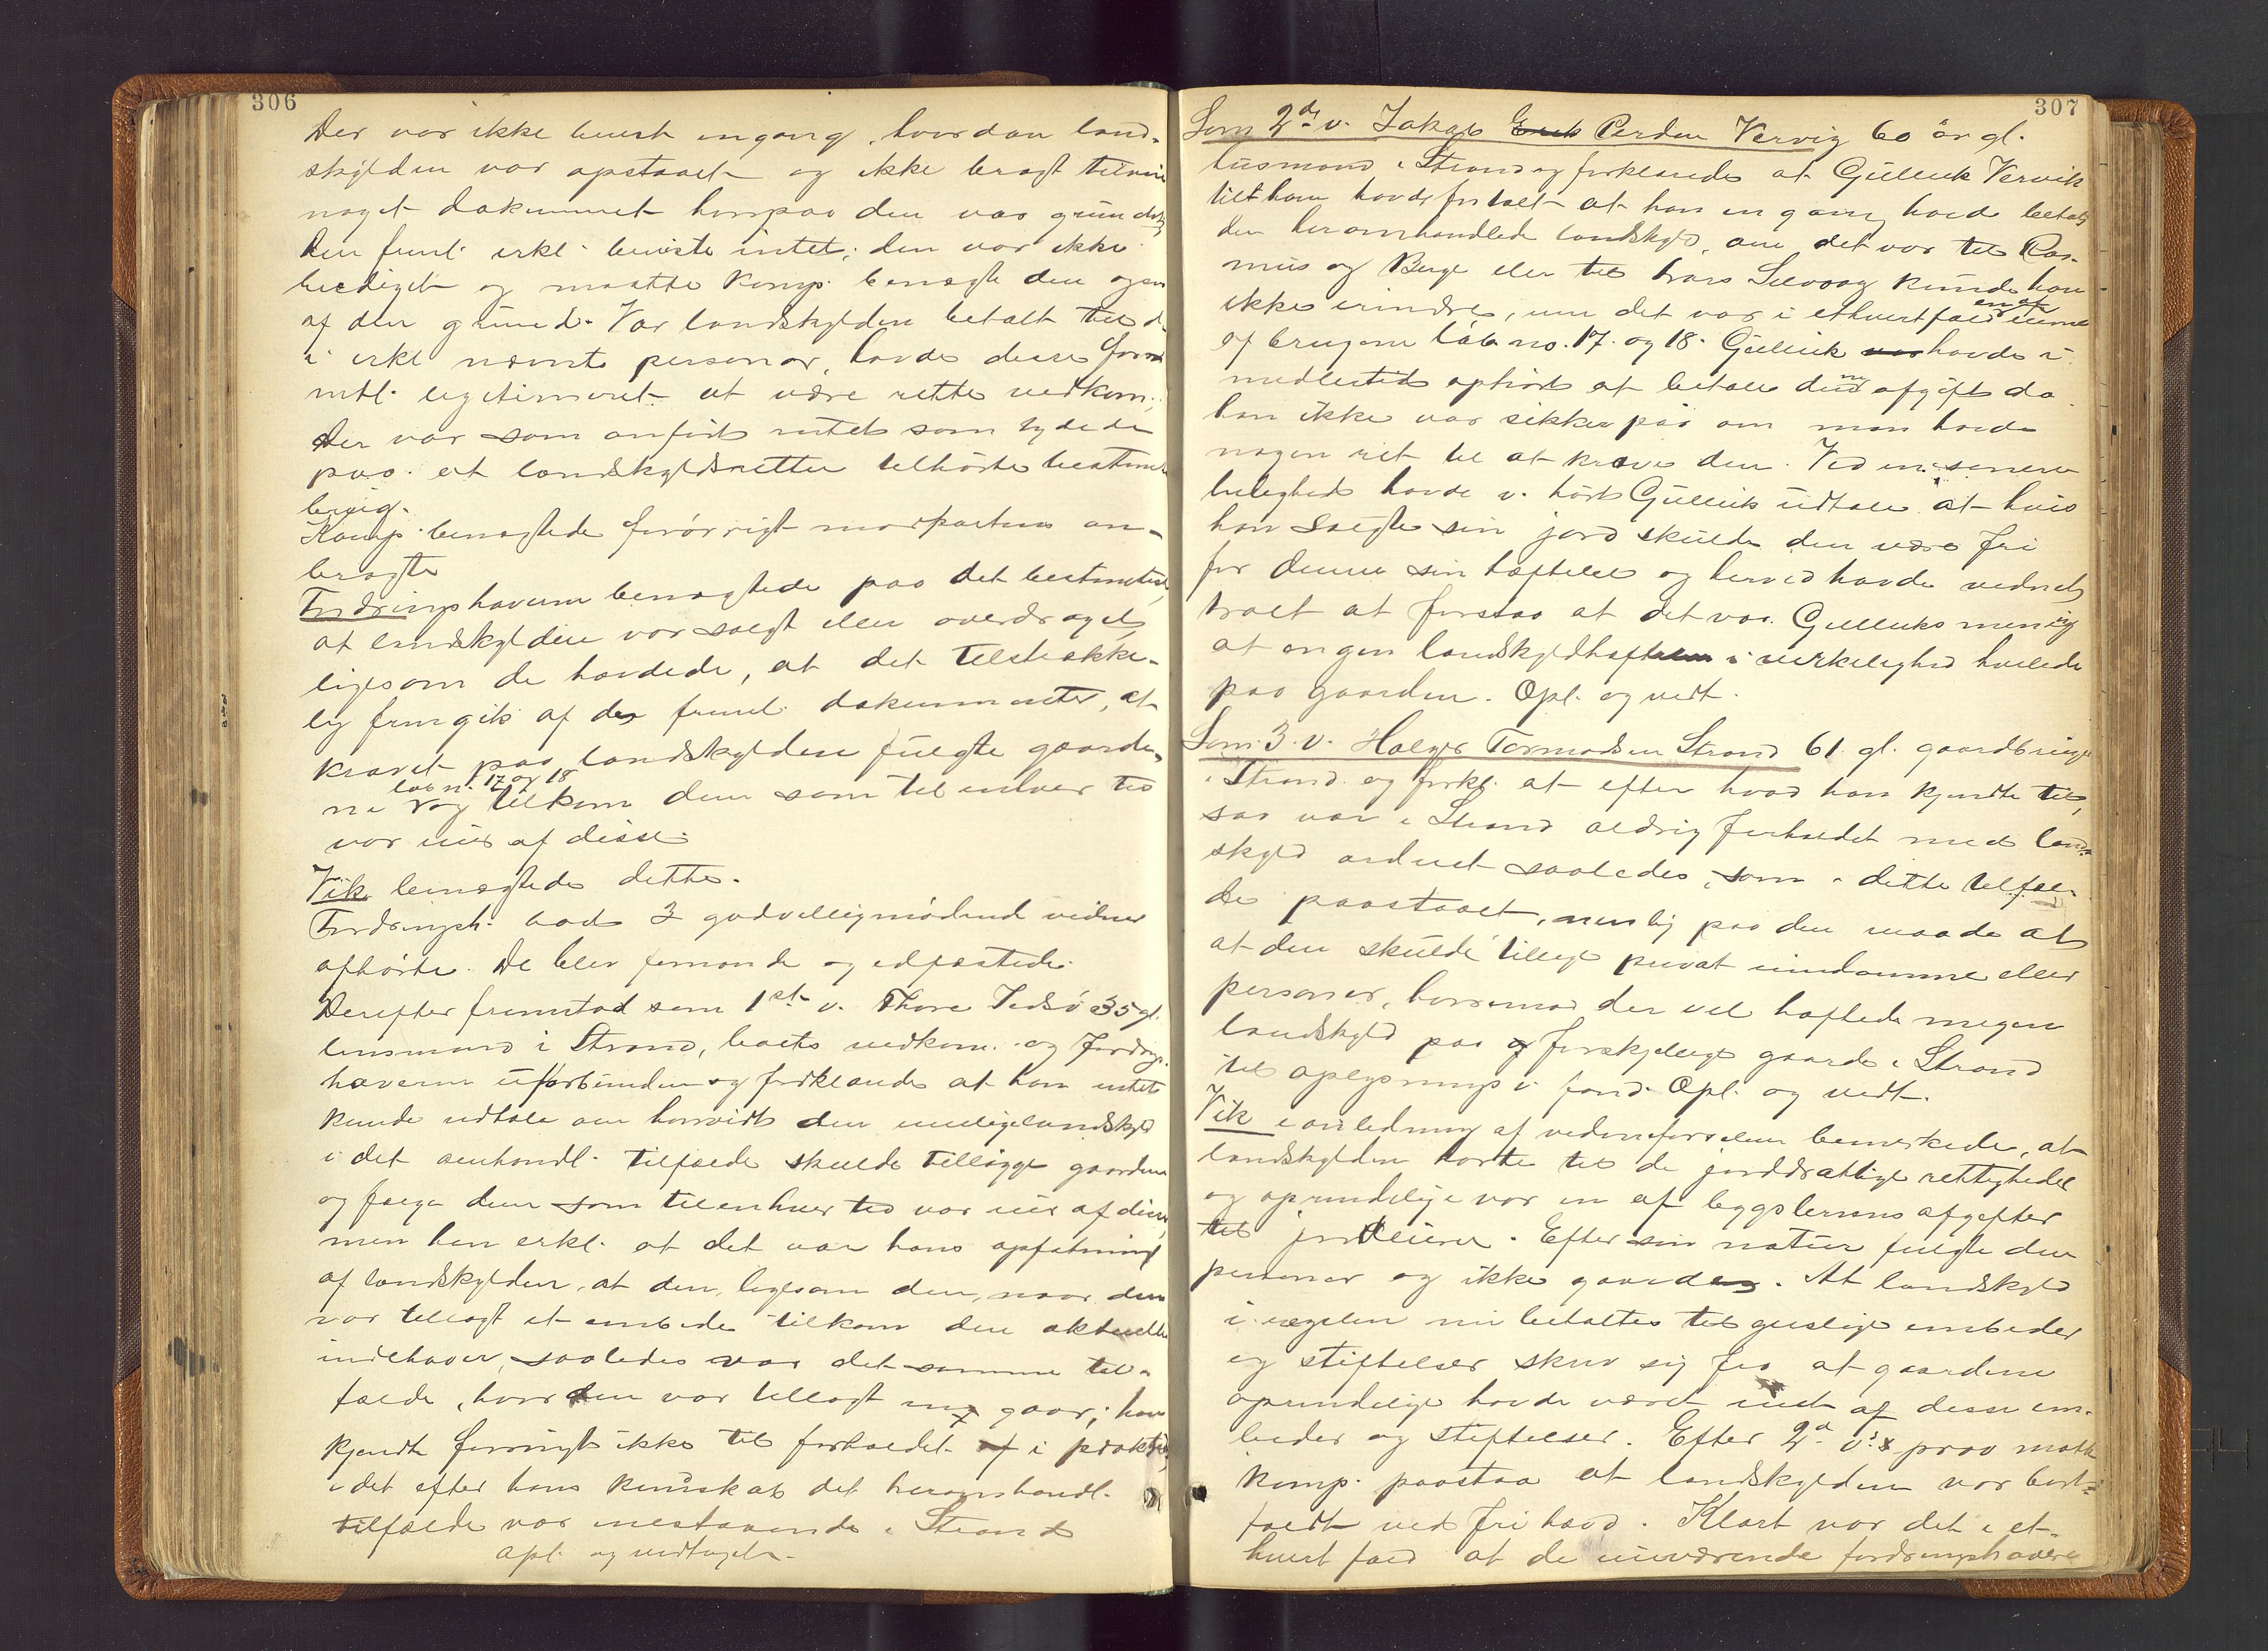 306
Der var ikke bevist engang, hvordan land-
skylden var opstaaet og ikke bragt tilveie
noget dokument hvorpaa den var grundet.
Den freml. erkl. beviste intet; den var ikke
beediget og maatte komp. benegte den ogsaa
af den grund. Var landskylden betalt til de
i erkl. nævnte personer, havde disse
legitimeret at være rette vedkom.;
Der var som anført intet som tydede
paa at landskyldsretten tilhørte bestemt
brug.
Komp. benegtede forøvrigt modpartens an-
bragte
Fordringshaverne benegtede paa det bestemteste,
at landskylden var solgt eller overdraget,
ligesom de hævdede, at det tilstrække-
lig fremgik af de freml. dokumenter, at
kravet paa landskylden fulgte gaarde-
løbn. 17 og 18
ne og tilkom dem som til enhver tid
var eier af disse.
Vik benegtede dette.
Fordringsh. lod 3 godvilligmødende vidner
afhøre. De blev formanede og edfæstede.
Derefter fremstod som 1ste v. Thore 35 gl.
lensmand i Strand, begts vedkom. og fordrings-
haverne uforbunden og forklarede at han intet
kunde udtale om hvorvidt den mulige landskyld
i det omhandl. tilfælde skulde tillægge gaarden
og følge dem som tilenhver tid var eier af denne,
men han erkl. at det var hans opfatning
af landskylden, at den, ligesom den, naar den
var tillagt et embede tilkom den aktuelle
indehaver, saaledes var det samme til-
fælde, hvor den var tillagt en gaar; han
kjendte forøvrigt ikke til forholdet i praktis,
idet efter hans kundskab det heromhandl.
tilfælde var enestaaende i Strand
Opl. og vedtaget.
307
Som 2den v. Jakob Persen Vervig 60 år gl.
husmand i Strand og forklarede at Gulleik Vervik
til ham havde fortalt at han engang havde betalt
den heromhandlede landskyld, om det var til Ras-
mus og Berge eller til Lars Selvaag kunde han
ikke erindre, men det var i ethvertfald en af eierne
af brugene løb no. 17 og 18. Gulleik havde i-
midlertid ophørt at betale denne afgift da
han ikke var sikker på om man havde
nogen ret til at kræve den. Ved en senere
leilighed havde v. hørt Gulleik udtale at hvis
han solgte sin jord skulde den være fri
for denne sin hæftelse og herved havde vidnet
troet at forstaa at det var Gulleiks mening
at ingen landskyldhæftelse i virkelighed hvilede
paa gaarden. Opl. og vedt.
Som 3. v. Holger Tormodsen Strand 61 gl. gaardbruger
i Strand og forkl. at efter hvad han kjendte til,
saa var i Strand aldrig forholdet med land-
skyld ordnet saaledes, som i dette tilfæl-
de paastaaet, nemlig paa den maade at
at den skulde tillige privat eiendomme eller
personer, hvorimod der vel hæftede megen
landskyld paa forskjellige gaarde i Strand
til oplysnings v. fond. Opl. og vedt.
Vik i anledning af vidneførselen bemerkede, at
landskylden hørte til de jorddrotlige rettigheder
og oprindelige var en af bygslerens afgifter
til jordeieren. Efter sin natur fulgte den
personer og ikke gaarde. At landskyld
i regelen nu betaltes til geistlige embeder
og stiftelser skrev sig fra at gaardene
oprindelige havde været eiet af disse em-
beder og stiftelser. Efter 2d v.s prov maatte
komp. paastaa at landskylden var bort-
faldt ved fri hævd. Klart var det i et-
hvert fald at de nuværende fordringshavere